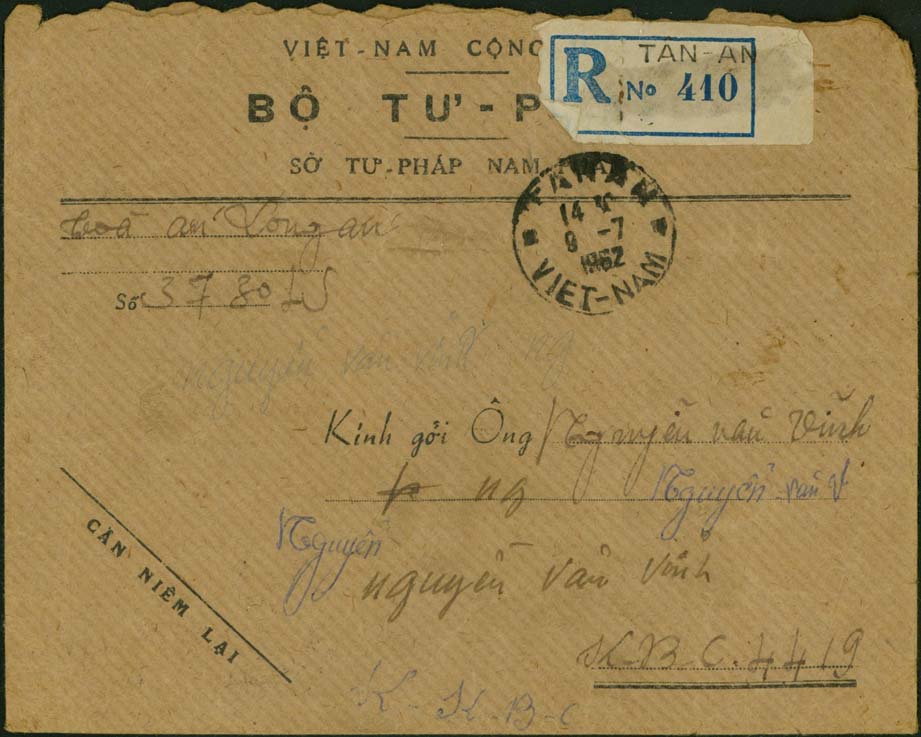 VIỆT-NAM CỘNG
BỘ TƯ-P
SỞ TƯ-PHÁP NAM
R TAN-AN
No 410
TANAN
14
9-7
1962
VIET-NAM
toà án Long an
Số 3780
nguyễn văn vinh ng
Kính gởi Ông Nguyễn văn Vinh
ng Nguyễn văn V
Nguyễn
nguyễn văn vinh
K.B.C. 4419
CẦN NIÊM LẠI
K - K-B-C